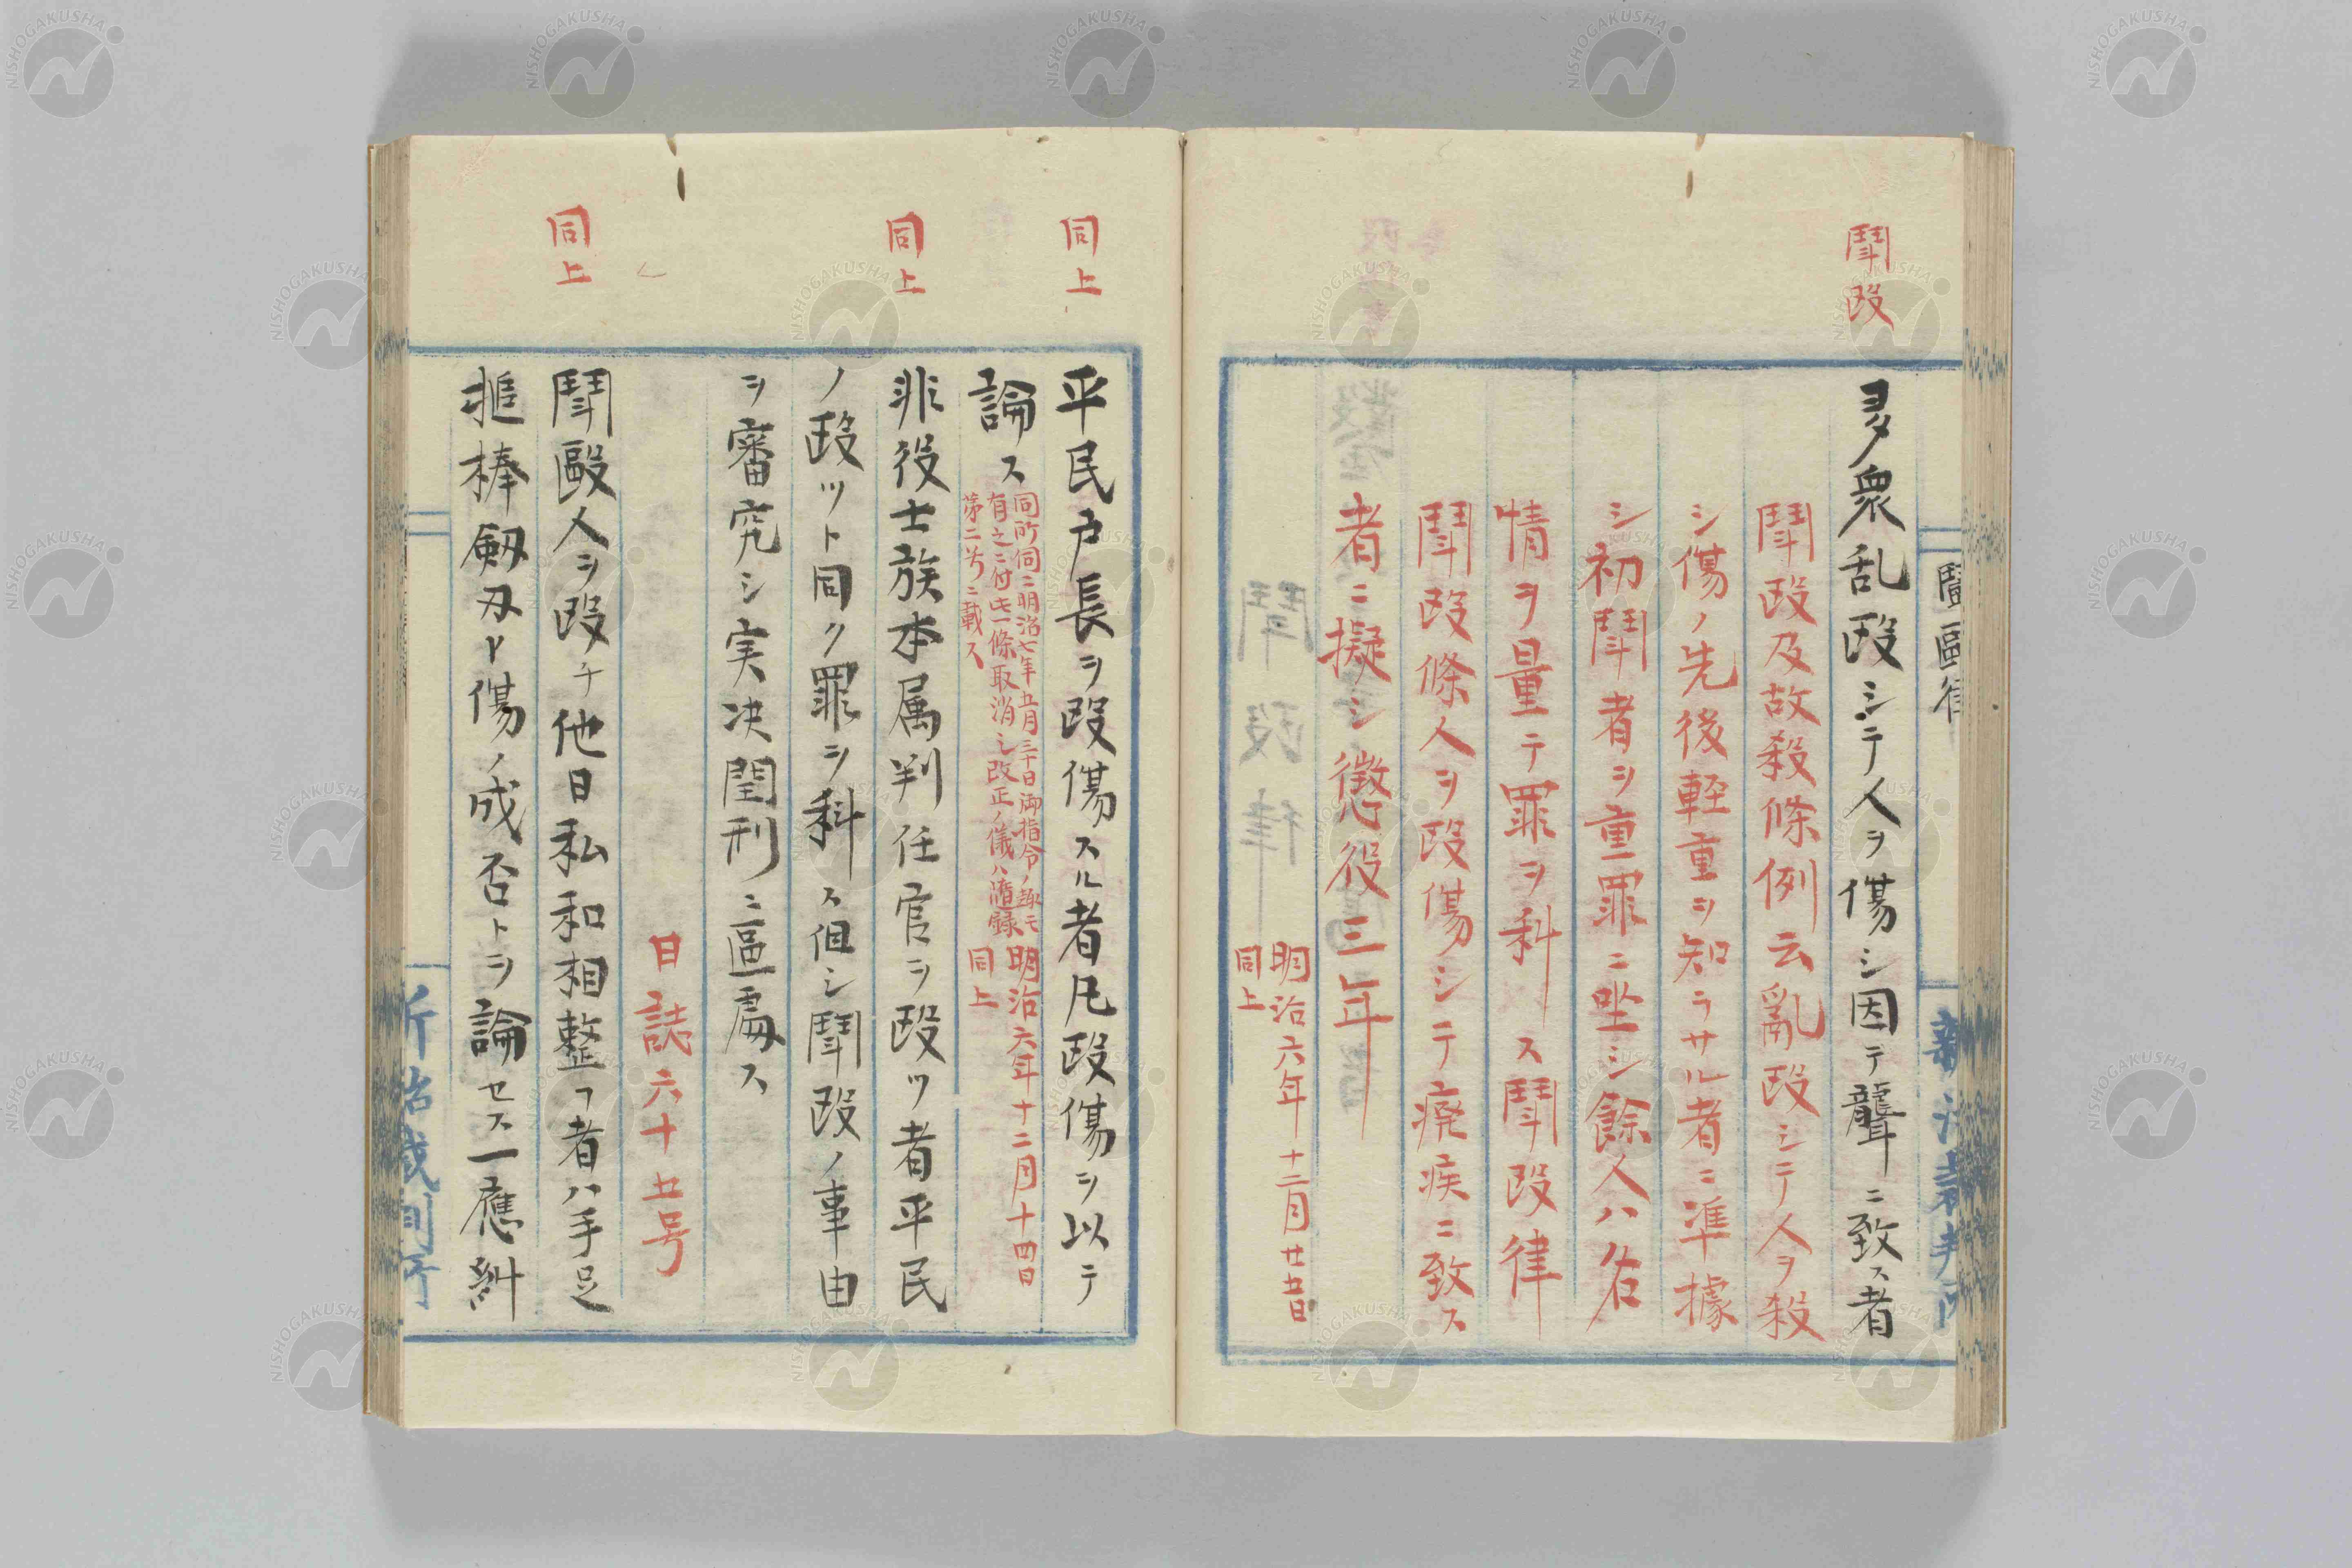 鬪毆
多衆乱毆シテ人ヲ傷シ因テ聾ニ致ス者
鬪毆及故殺條例云亂毆シテ人ヲ殺
シ傷ノ先後軽重ヲ知ラサル者ニ準據
シ初鬪者ヲ重罪ニ坐シ餘人ハ各
情ヲ量テ罪ヲ科ス鬪毆律
鬪毆條人ヲ毆傷シテ癈疾ニ致ス
者ニ擬シ懲役三年
明治六年十二月廿五日
同上
同上
平民戸長ヲ毆傷スル者凡毆傷ヲ以テ
論ス
同所伺ニ明治七年五月三十日御指令ノ趣モ
有之ニ付此一條取消シ改正ノ儀ハ
第二号ニ載ス
明治六年十二月十四日
同上
同上
非役士族本属判任官ヲ毆ツ者平民
ノ毆ツト同ク罪ヲ科ス但シ鬪毆ノ事由
ヲ審究シ実决閏刑ニ區處ス
日誌六十五号
同上
鬪毆人ヲ毆チ他日私和相整フ者ハ手足
槌棒劔刃ヤ傷ノ成否トヲ論セス一應糾